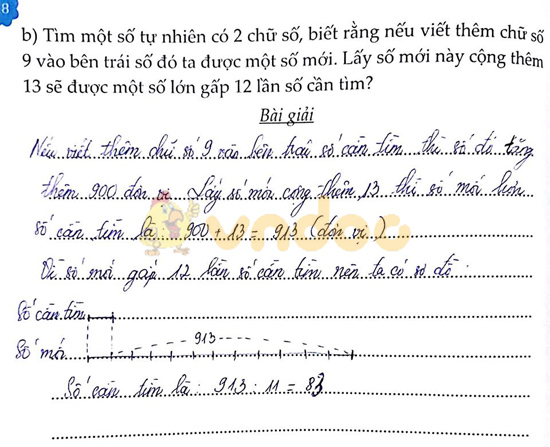 8
b) Tìm một số tự nhiên có 2 chữ số, biết rằng nếu viết thêm chữ số
9 vào bên trái số đó ta được một số mới. Lấy số mới này cộng thêm
13 sẽ được một số lớn gấp 12 lần số cần tìm?
Bài giải
Nếu viết thêm chữ số 9 vào bên trái số cần tìm thì số đó tăng
thêm 900 đơn vị. Lấy số mới cộng thêm 13 thì số mới hơn
số cần tìm là: 900 + 13 = 913 (đơn vị)
Vì số mới gấp 12 lần số cần tìm nên ta có sơ đồ:
Số cần tìm
913
Số mới
Số cần tìm là: 913 : 11 = 83
vndoc